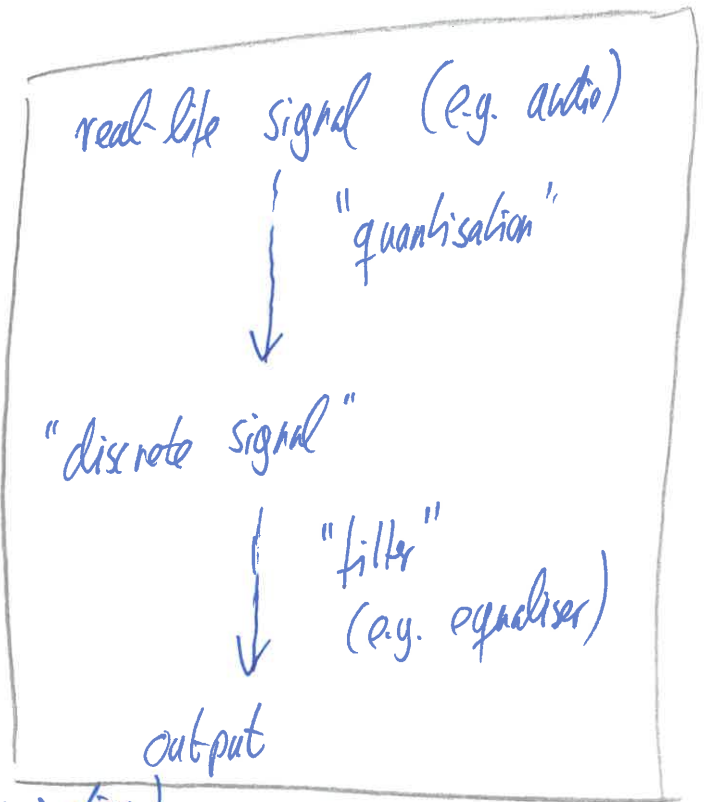 real-life signal (e.g. audio)
"quantisation"
"discrete signal"
"filter"
(e.g. equaliser)
output